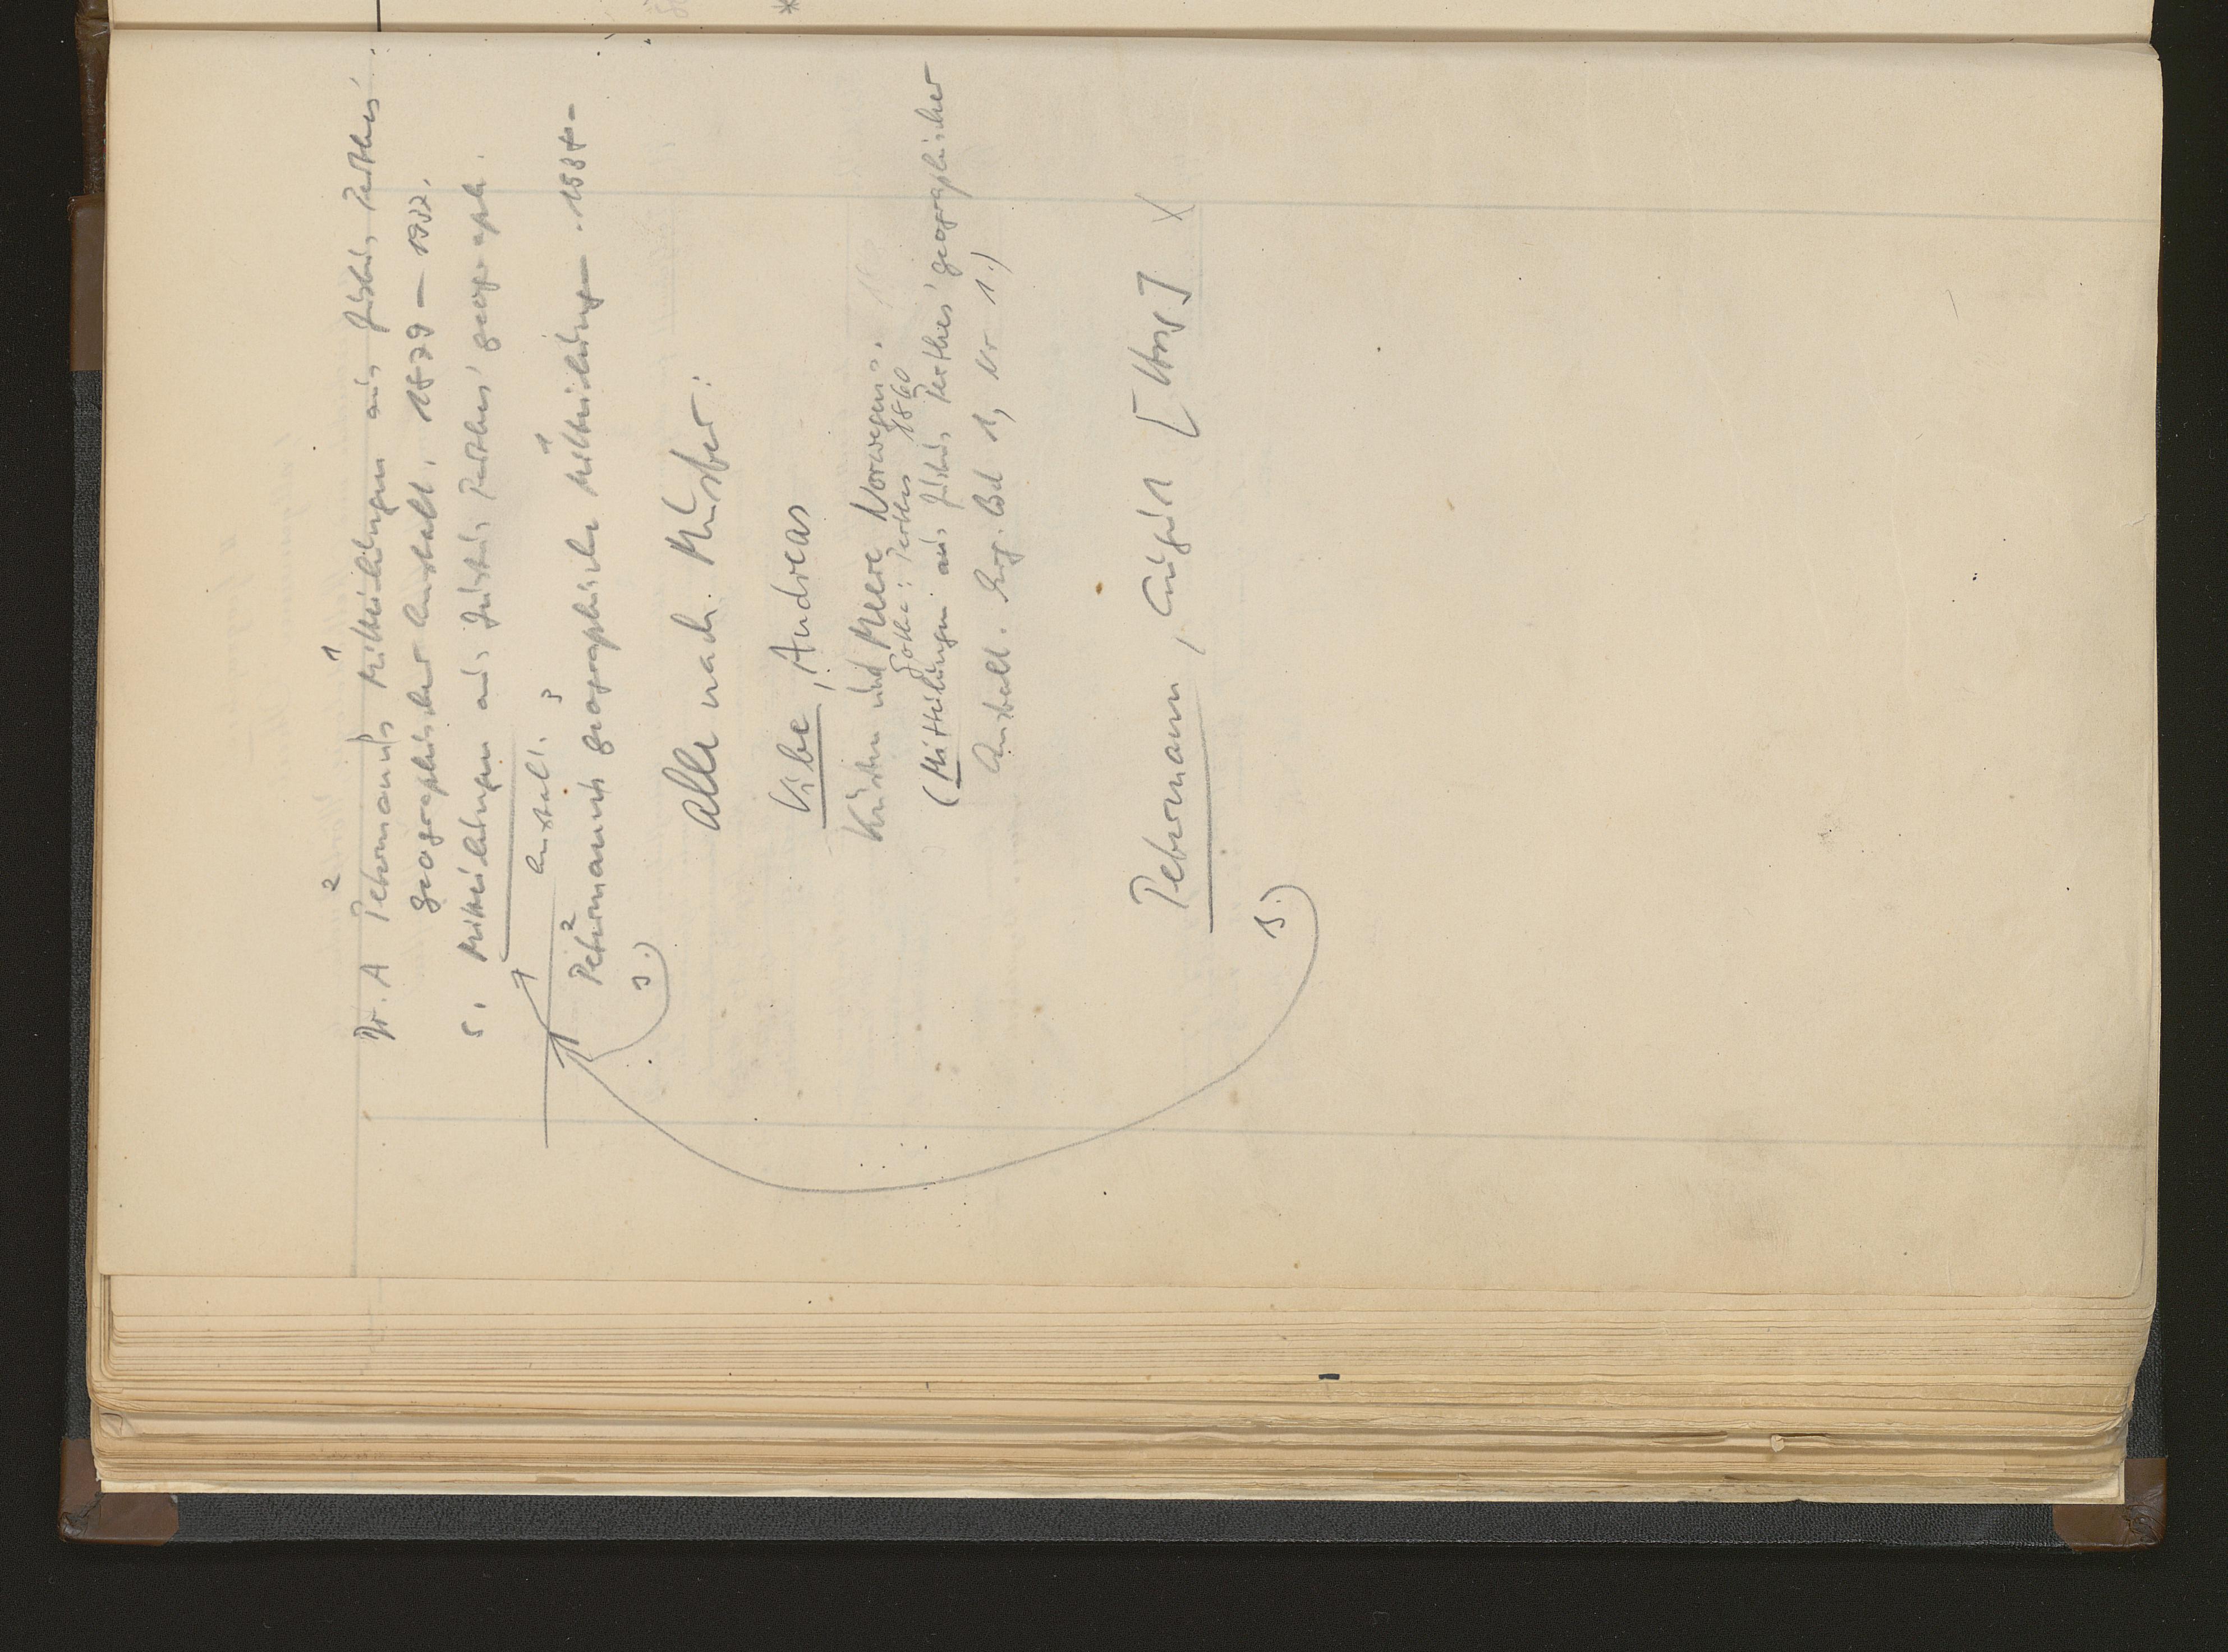 Dr. A Petermanns Mittheilungen aus Justus Perthes'
2 1
geographischer Anstalt. 1879 – 1937.
s. Mittheilungen aus Justus Perthes' geograph.
Anstalt.
3 2 1
Petermanns geographische Mittheilungen – 1884 –
Alle nach Muster:
Vibe, Andreas
Küsten und Meere Norwegens.
Gotha: Perthes 1860
(Mittheilungen aus Justus Perthes' geographischer
Anstalt. Erg. Bd 1, Nr 1.)
Petermann, August [Hrsg] X